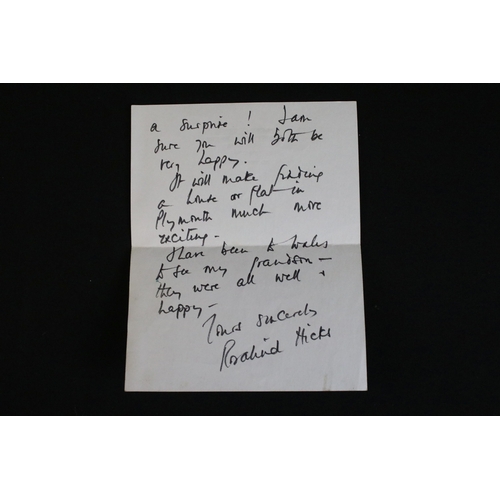 a surprise! I am
sure you will both be
very happy.
It will make finding
a house or flat in
Plymouth much more
exciting -
I have been to Wales
to see my grandson -
they were all well +
happy -
Yours sincerely
Rosalind Hicks